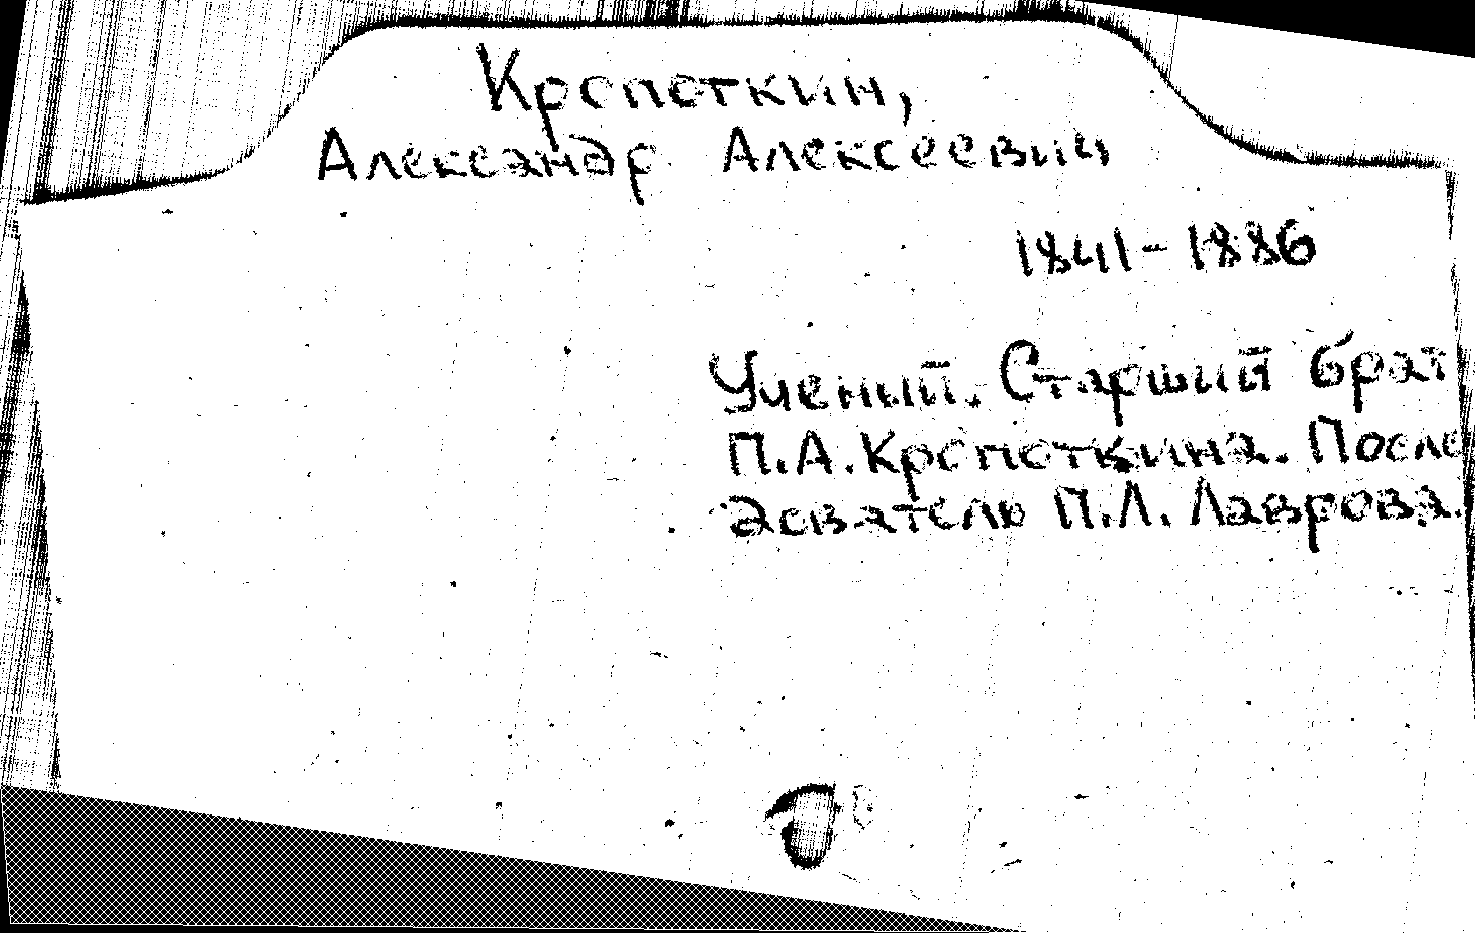 Кропоткин,
Александр Алексеевич
1841-1886
Ученый. Старший брат
П.А.Кропоткина. После
дователь П.Л. Лаврова.